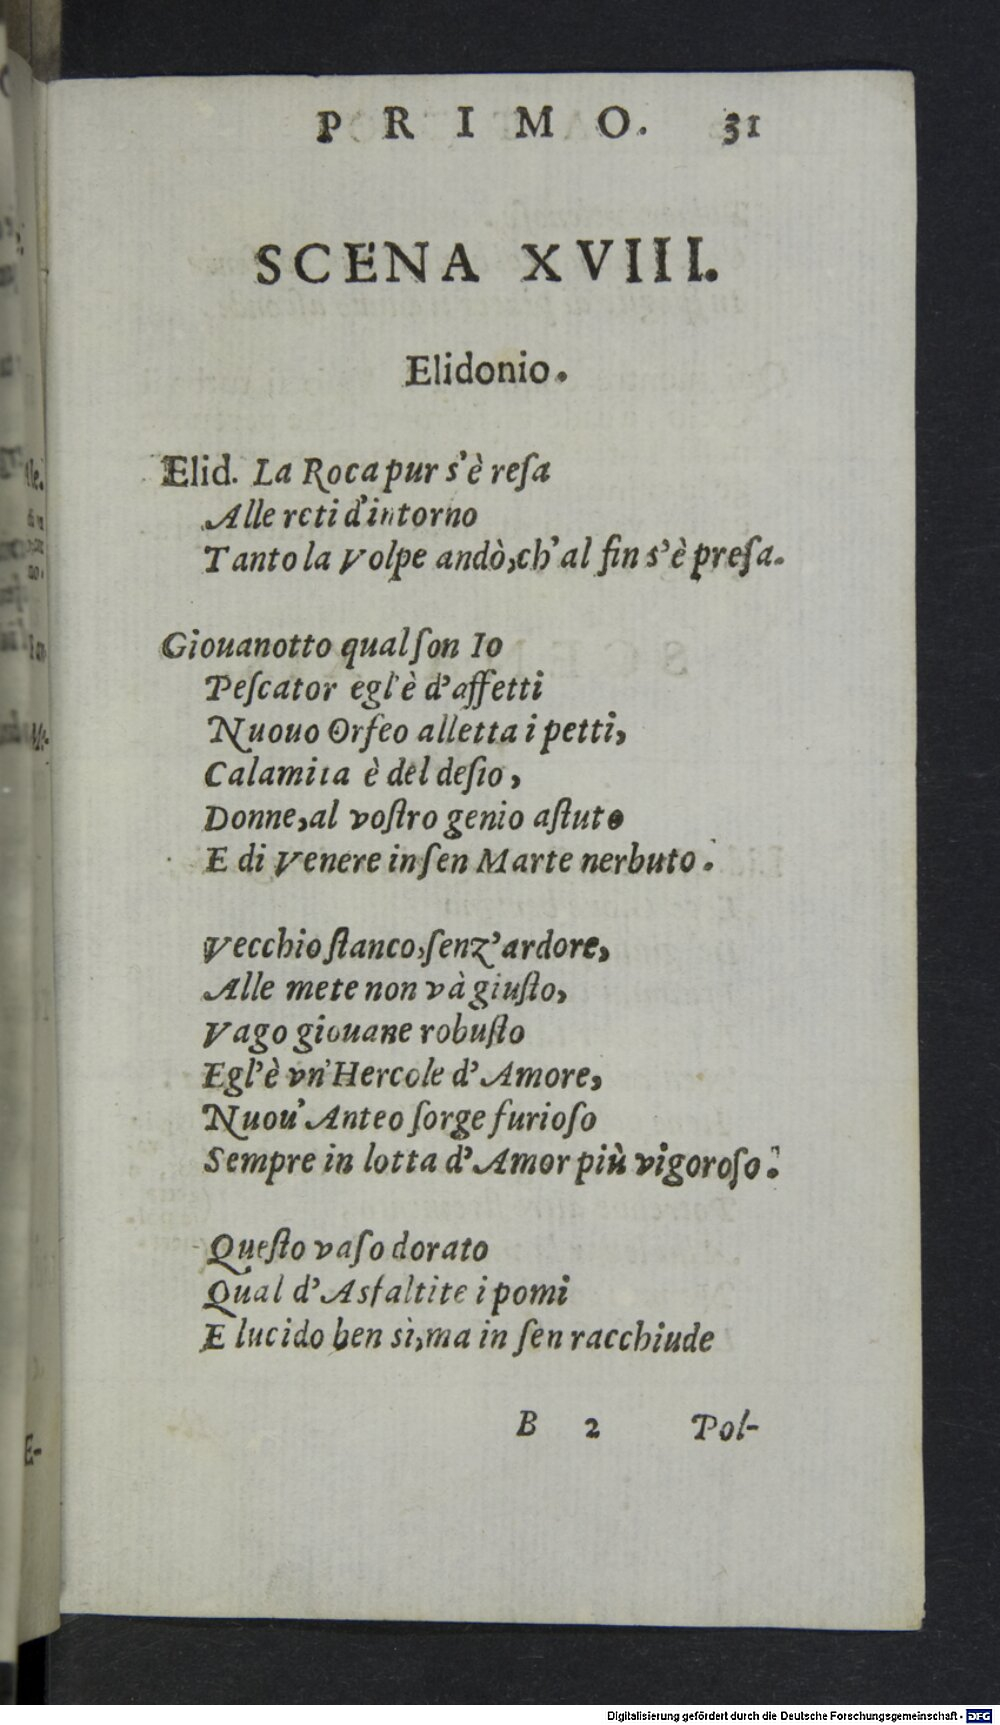 PRIMO. 31
SCENA XVIII.
Elidonio.
Elid. La Roca pur s'è reſa
Alle reti d'intorno
Tanto la Volpe andò, ch'al fin s'è preſa.
Giouanotto qual ſon Io
Peſcator egl'è d'affetti
Nuouo Orfeo alletta i petti,
Calamita è del deſio,
Donne, al voſtro genio aſtuto
E di Venere in ſen Marte nerbuto.
Vecchio ſtanco, ſenz'ardore,
Alle mete non và giuſto,
Vago giouane robuſto
Egl'è vn'Hercole d'Amore,
Nuou' Anteo ſorge furioſo
Sempre in lotta d'Amor più vigoroſo.
Queſto vaſo dorato
Qual d'Asfaltite i pomi
E lucido ben sì, ma in ſen racchiude
B 2 Pol-
Digitalisierung gefördert durch die Deutsche Forschungsgemeinschaft - DFG